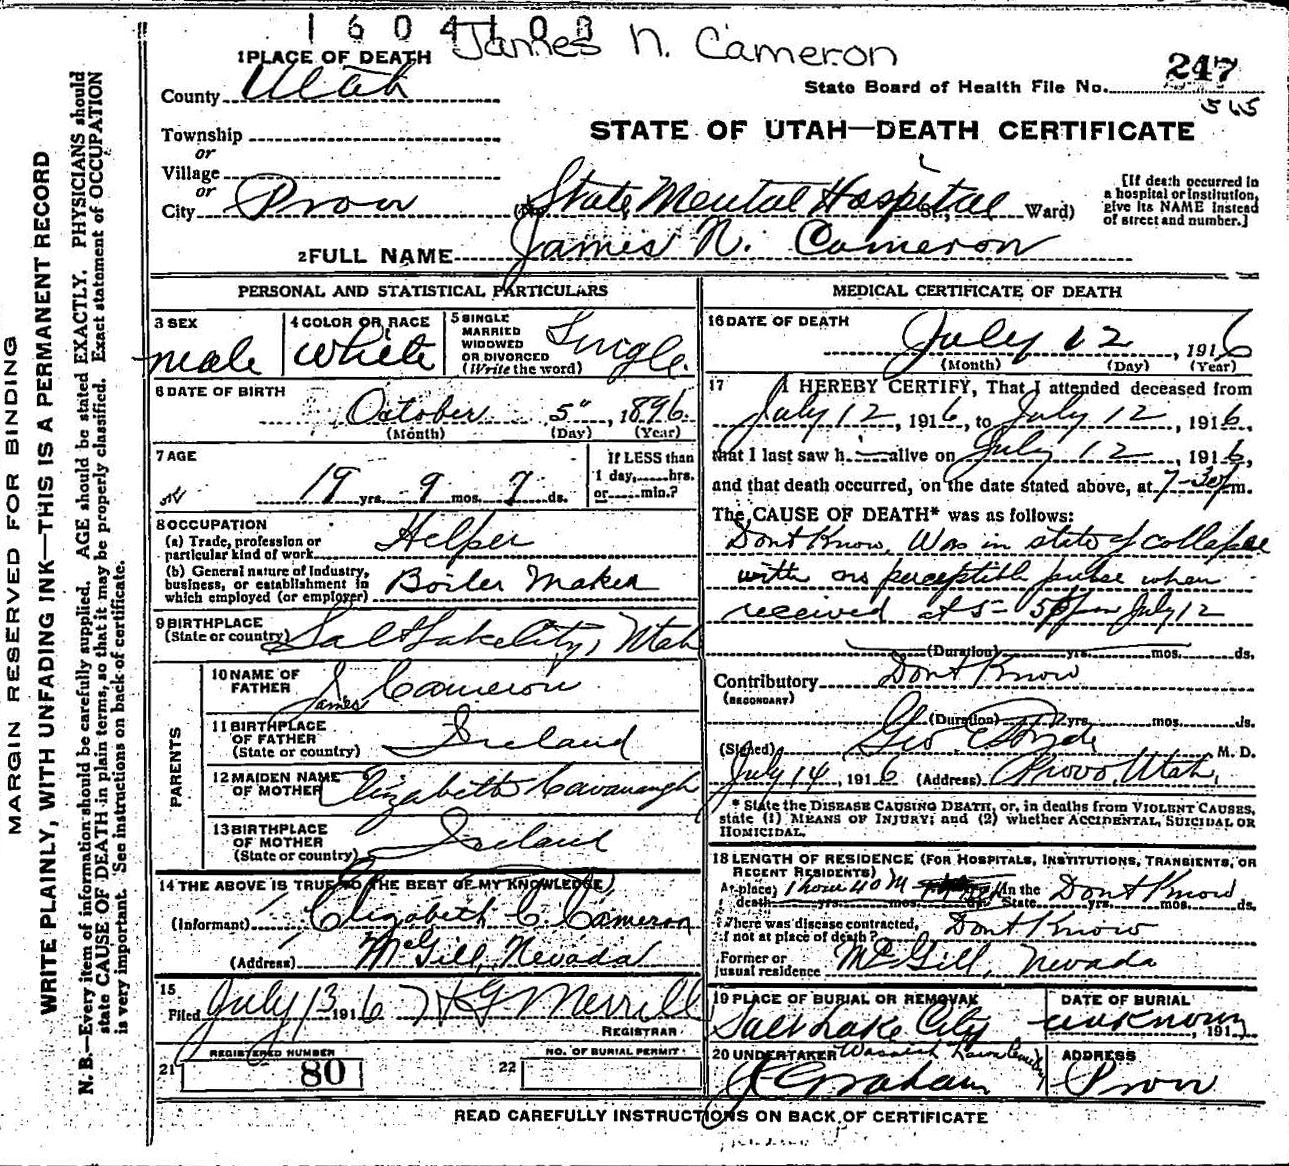 1604103
James N. Cameron
1 PLACE OF DEATH
County Utah
State Board of Health File No. 247
565
Township
or
Village
or
City Provo
STATE OF UTAH—DEATH CERTIFICATE
State Mental Hospital St., Ward)
[If death occurred in a hospital or institution, give its NAME instead of street and number.]
2 FULL NAME James N. Cameron
PERSONAL AND STATISTICAL PARTICULARS
3 SEX
male
4 COLOR OR RACE
White
5 SINGLE MARRIED WIDOWED OR DIVORCED (Write the word)
Single
6 DATE OF BIRTH
October 5" 1896
(Month) (Day) (Year)
7 AGE
19 yrs. 9 mos. 7 ds.
If LESS than 1 day,......hrs. or......min.?
8 OCCUPATION
(a) Trade, profession or particular kind of work
Helper
(b) General nature of Industry, business, or establishment in which employed (or employer)
Boiler Maker
9 BIRTHPLACE
(State or country) Salt Lake City, Utah
PARENTS
10 NAME OF FATHER
J. Cameron
James
11 BIRTHPLACE OF FATHER
(State or country) Ireland
12 MAIDEN NAME OF MOTHER Elizabeth Cavanaugh
13 BIRTHPLACE OF MOTHER
(State or country) Ireland
14 THE ABOVE IS TRUE TO THE BEST OF MY KNOWLEDGE
(Informant) Elizabeth C. Cameron
(Address) McGill, Nevada
15
Filed July 13 1916 H G Merrill
REGISTRAR
REGISTERED NUMBER
21 80
NO. OF BURIAL PERMIT
22
MEDICAL CERTIFICATE OF DEATH
16 DATE OF DEATH
July 12, 1916
(Month) (Day) (Year)
17 I HEREBY CERTIFY, That I attended deceased from
July 12, 1916, to July 12, 1916,
that I last saw h alive on July 12, 1916,
and that death occurred, on the date stated above, at 7-30 P m.
The CAUSE OF DEATH* was as follows:
Dont Know, Was in state of collapse
with no perceptible pulse when
received at 5- pm July 12
(Duration) yrs. mos. ds.
Contributory Dont Know
(SECONDARY)
(Duration) yrs. mos. ds.
(Signed) Geo E M. D.
July 14, 1916 (Address) Provo, Utah,
* State the DISEASE CAUSING DEATH, or, in deaths from VIOLENT CAUSES, state (1) MEANS OF INJURY; and (2) whether ACCIDENTAL, SUICIDAL OR HOMICIDAL.
18 LENGTH OF RESIDENCE (FOR HOSPITALS, INSTITUTIONS, TRANSIENTS, OR RECENT RESIDENTS)
At place of death 1 hour 40 M In the State Dont Know yrs. mos. ds.
Where was disease contracted, if not at place of death? Dont Know
Former or usual residence McGill, Nevada
19 PLACE OF BURIAL OR REMOVAL
Salt Lake City
DATE OF BURIAL
unknown, 191
20 UNDERTAKER Wasatch Lawn Cemetery
Graham
ADDRESS
Provo
READ CAREFULLY INSTRUCTIONS ON BACK OF CERTIFICATE
MARGIN RESERVED FOR BINDING
WRITE PLAINLY, WITH UNFADING INK—THIS IS A PERMANENT RECORD
N. B.—Every item of information should be carefully supplied. AGE should be stated EXACTLY. PHYSICIANS should
state CAUSE OF DEATH in plain terms, so that it may be properly classified. Exact statement of OCCUPATION
is very important. See instructions on back of certificate.